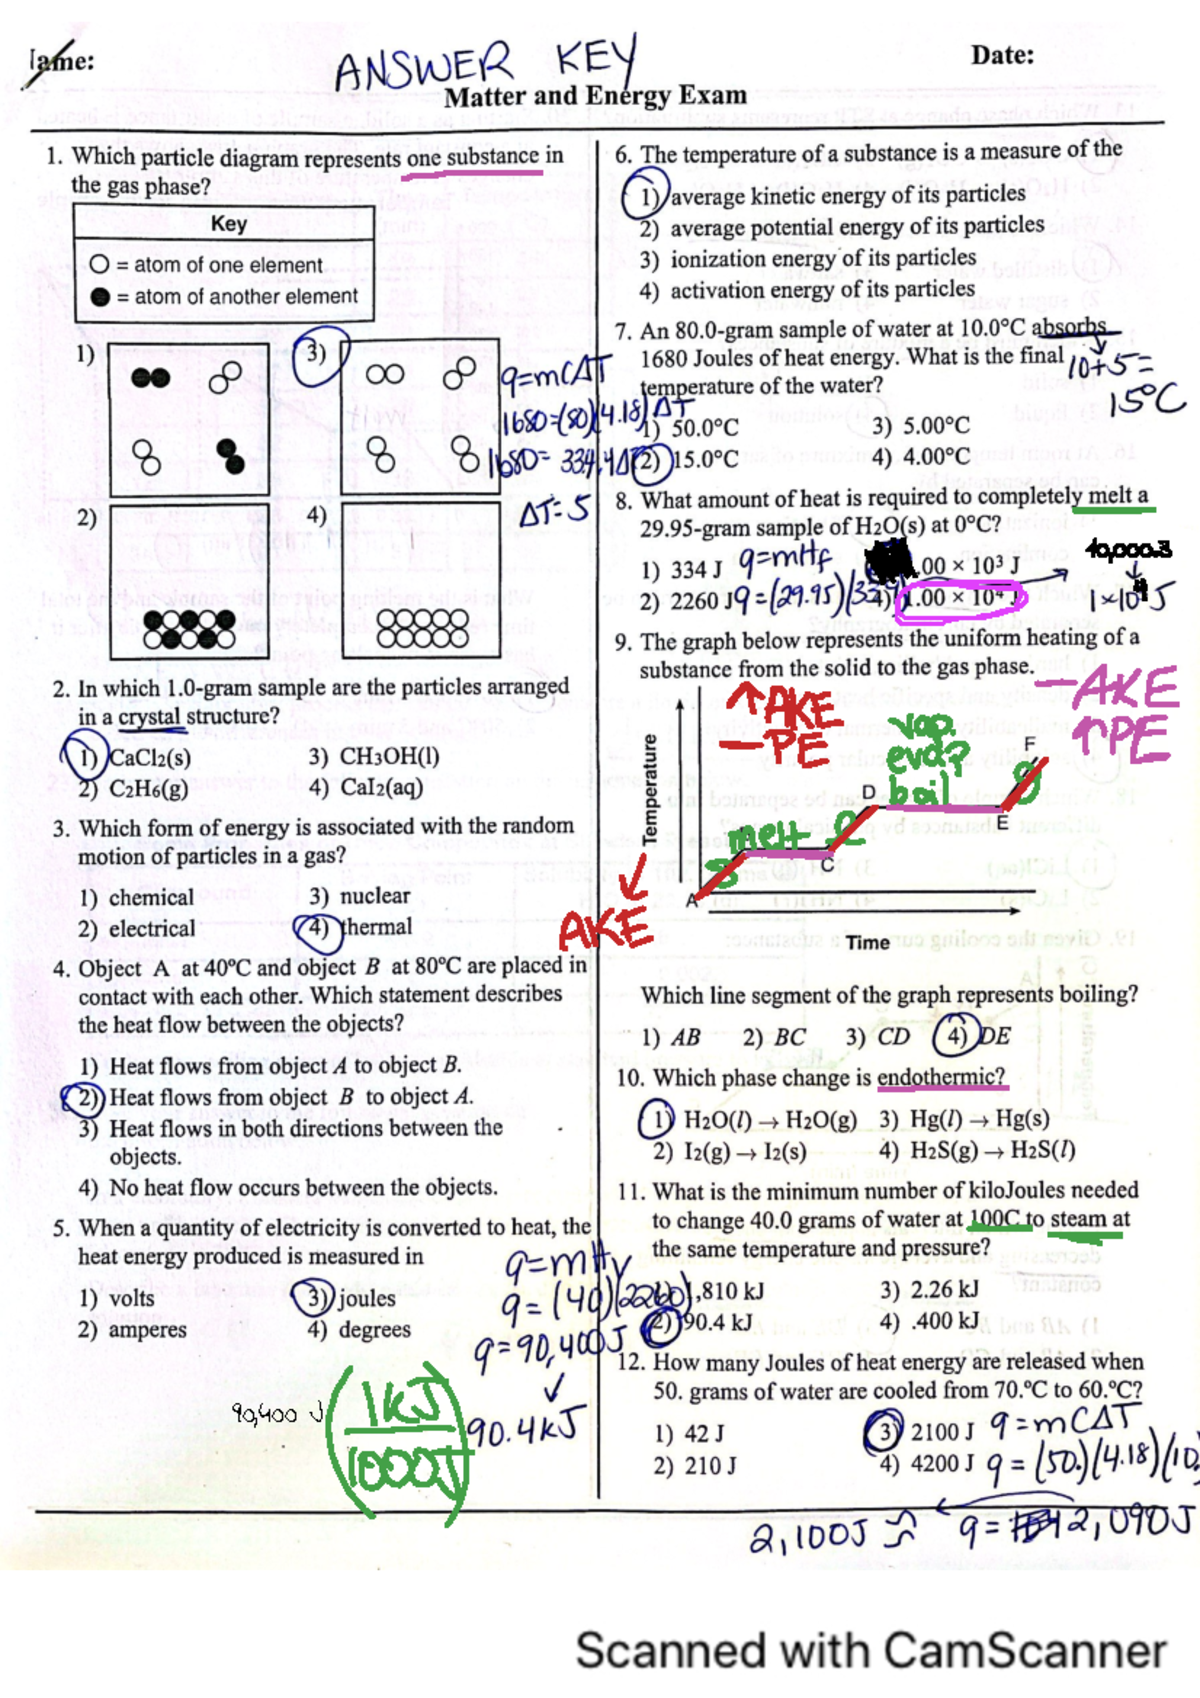 lame:
ANSWER KEY
Date:
Matter and Energy Exam
1. Which particle diagram represents one substance in
the gas phase?
Key
= atom of one element
= atom of another element
1)
3)
2)
4)
q=mCΔT
1680=(80)(4.18)ΔT
1680=334.4ΔT
ΔT=5
2. In which 1.0-gram sample are the particles arranged
in a crystal structure?
1) CaCl2(s) 3) CH3OH(l)
2) C2H6(g) 4) CaI2(aq)
3. Which form of energy is associated with the random
motion of particles in a gas?
1) chemical 3) nuclear
2) electrical 4) thermal
4. Object A at 40°C and object B at 80°C are placed in
contact with each other. Which statement describes
the heat flow between the objects?
1) Heat flows from object A to object B.
2) Heat flows from object B to object A.
3) Heat flows in both directions between the
objects.
4) No heat flow occurs between the objects.
5. When a quantity of electricity is converted to heat, the
heat energy produced is measured in
1) volts 3) joules
2) amperes 4) degrees
q=mHv
q=(40)(2260)
q=90,400J
90,400 J (1kJ/1000J)
90.4kJ
6. The temperature of a substance is a measure of the
1) average kinetic energy of its particles
2) average potential energy of its particles
3) ionization energy of its particles
4) activation energy of its particles
7. An 80.0-gram sample of water at 10.0°C absorbs
1680 Joules of heat energy. What is the final
temperature of the water?
10+5=
15°C
1) 50.0°C 3) 5.00°C
2) 15.0°C 4) 4.00°C
8. What amount of heat is required to completely melt a
29.95-gram sample of H2O(s) at 0°C?
1) 334 J q=mHf .00 × 10³ J
2) 2260 J q=(29.95)(334) 4) 1.00 × 10⁴ J
10,000.3
1×10⁴J
9. The graph below represents the uniform heating of a
substance from the solid to the gas phase.
↑AKE
–PE
–AKE
↑PE
vap.
evap
boil
melt
s
l
g
Temperature
AKE
A
C
D
E
F
Time
Which line segment of the graph represents boiling?
1) AB 2) BC 3) CD 4) DE
10. Which phase change is endothermic?
1) H2O(l) → H2O(g) 3) Hg(l) → Hg(s)
2) I2(g) → I2(s) 4) H2S(g) → H2S(l)
11. What is the minimum number of kiloJoules needed
to change 40.0 grams of water at 100C to steam at
the same temperature and pressure?
1) 1,810 kJ 3) 2.26 kJ
2) 90.4 kJ 4) .400 kJ
12. How many Joules of heat energy are released when
50. grams of water are cooled from 70.°C to 60.°C?
1) 42 J 3) 2100 J
2) 210 J 4) 4200 J
q=mCΔT
q=(50.)(4.18)(10.
q= 2,090J
2,100J
Scanned with CamScanner